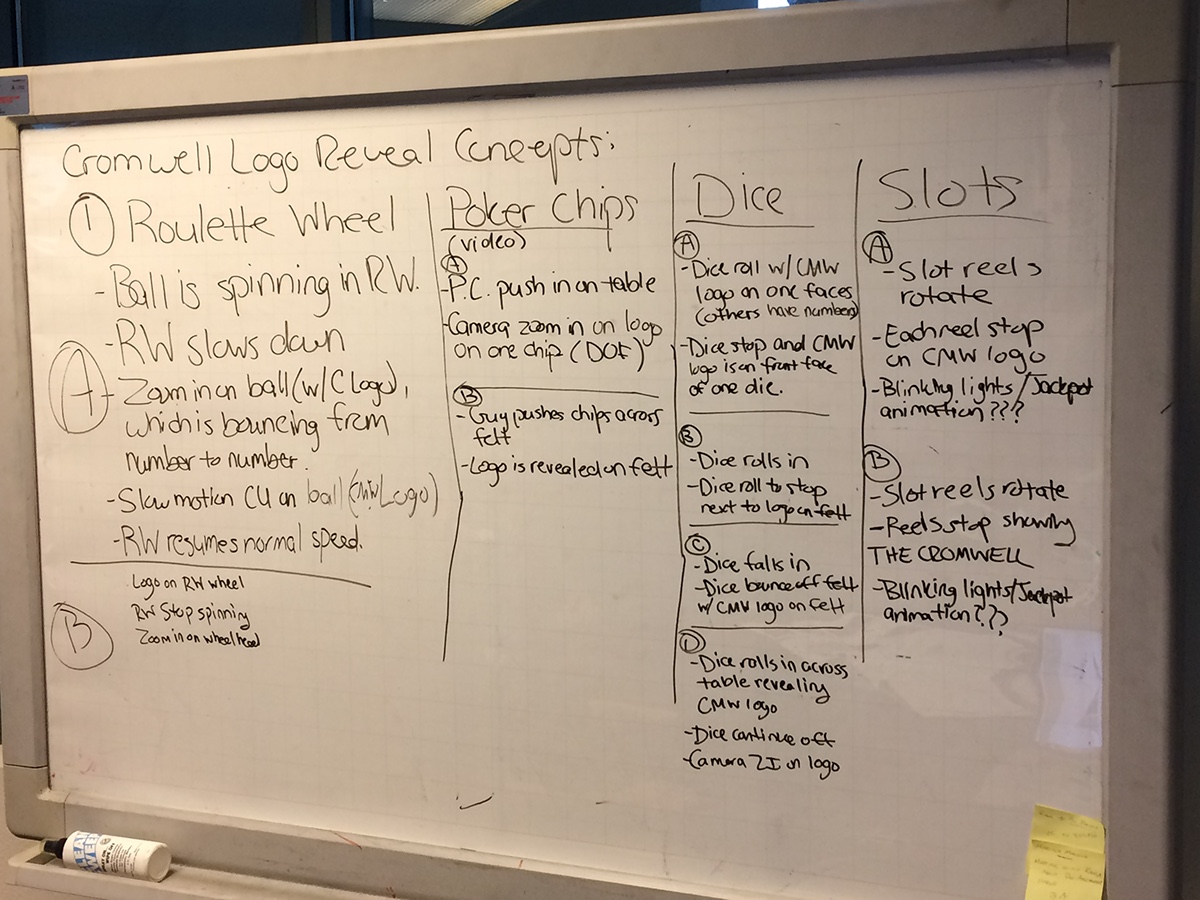 Cromwell Logo Reveal Concepts:
1 Roulette Wheel
- Ball is spinning in RW.
- RW slows down
A - Zoom in on ball (w/ C logo),
which is bouncing from
number to number.
- Slow motion CU on ball (CMW Logo)
- RW resumes normal speed.
B
Logo on RW wheel
RW Stop spinning
Zoom in on wheel head
Poker Chips
(video)
A
- P.C. push in on table
- Camera zoom in on logo
on one chip (DOF)
B
- Guy pushes chips across
felt
- Logo is revealed on felt
Dice
A
- Dice roll w/ CMW
logo on one faces
(others have numbers)
- Dice stop and CMW
logo is on front face
of one die.
B
- Dice rolls in
- Dice roll to stop
next to logo on felt
C
- Dice falls in
- Dice bounce off felt
w/ CMW logo on felt
D
- Dice rolls in across
table revealing
CMW logo
- Dice continue off
- Camera ZI on logo
Slots
A
- Slot reels
rotate
- Each reel stop
on CMW logo
- Blinking lights / Jackpot
animation???
B
- Slot reels rotate
- Reels stop showing
THE CROMWELL
- Blinking lights/Jackpot
animation???